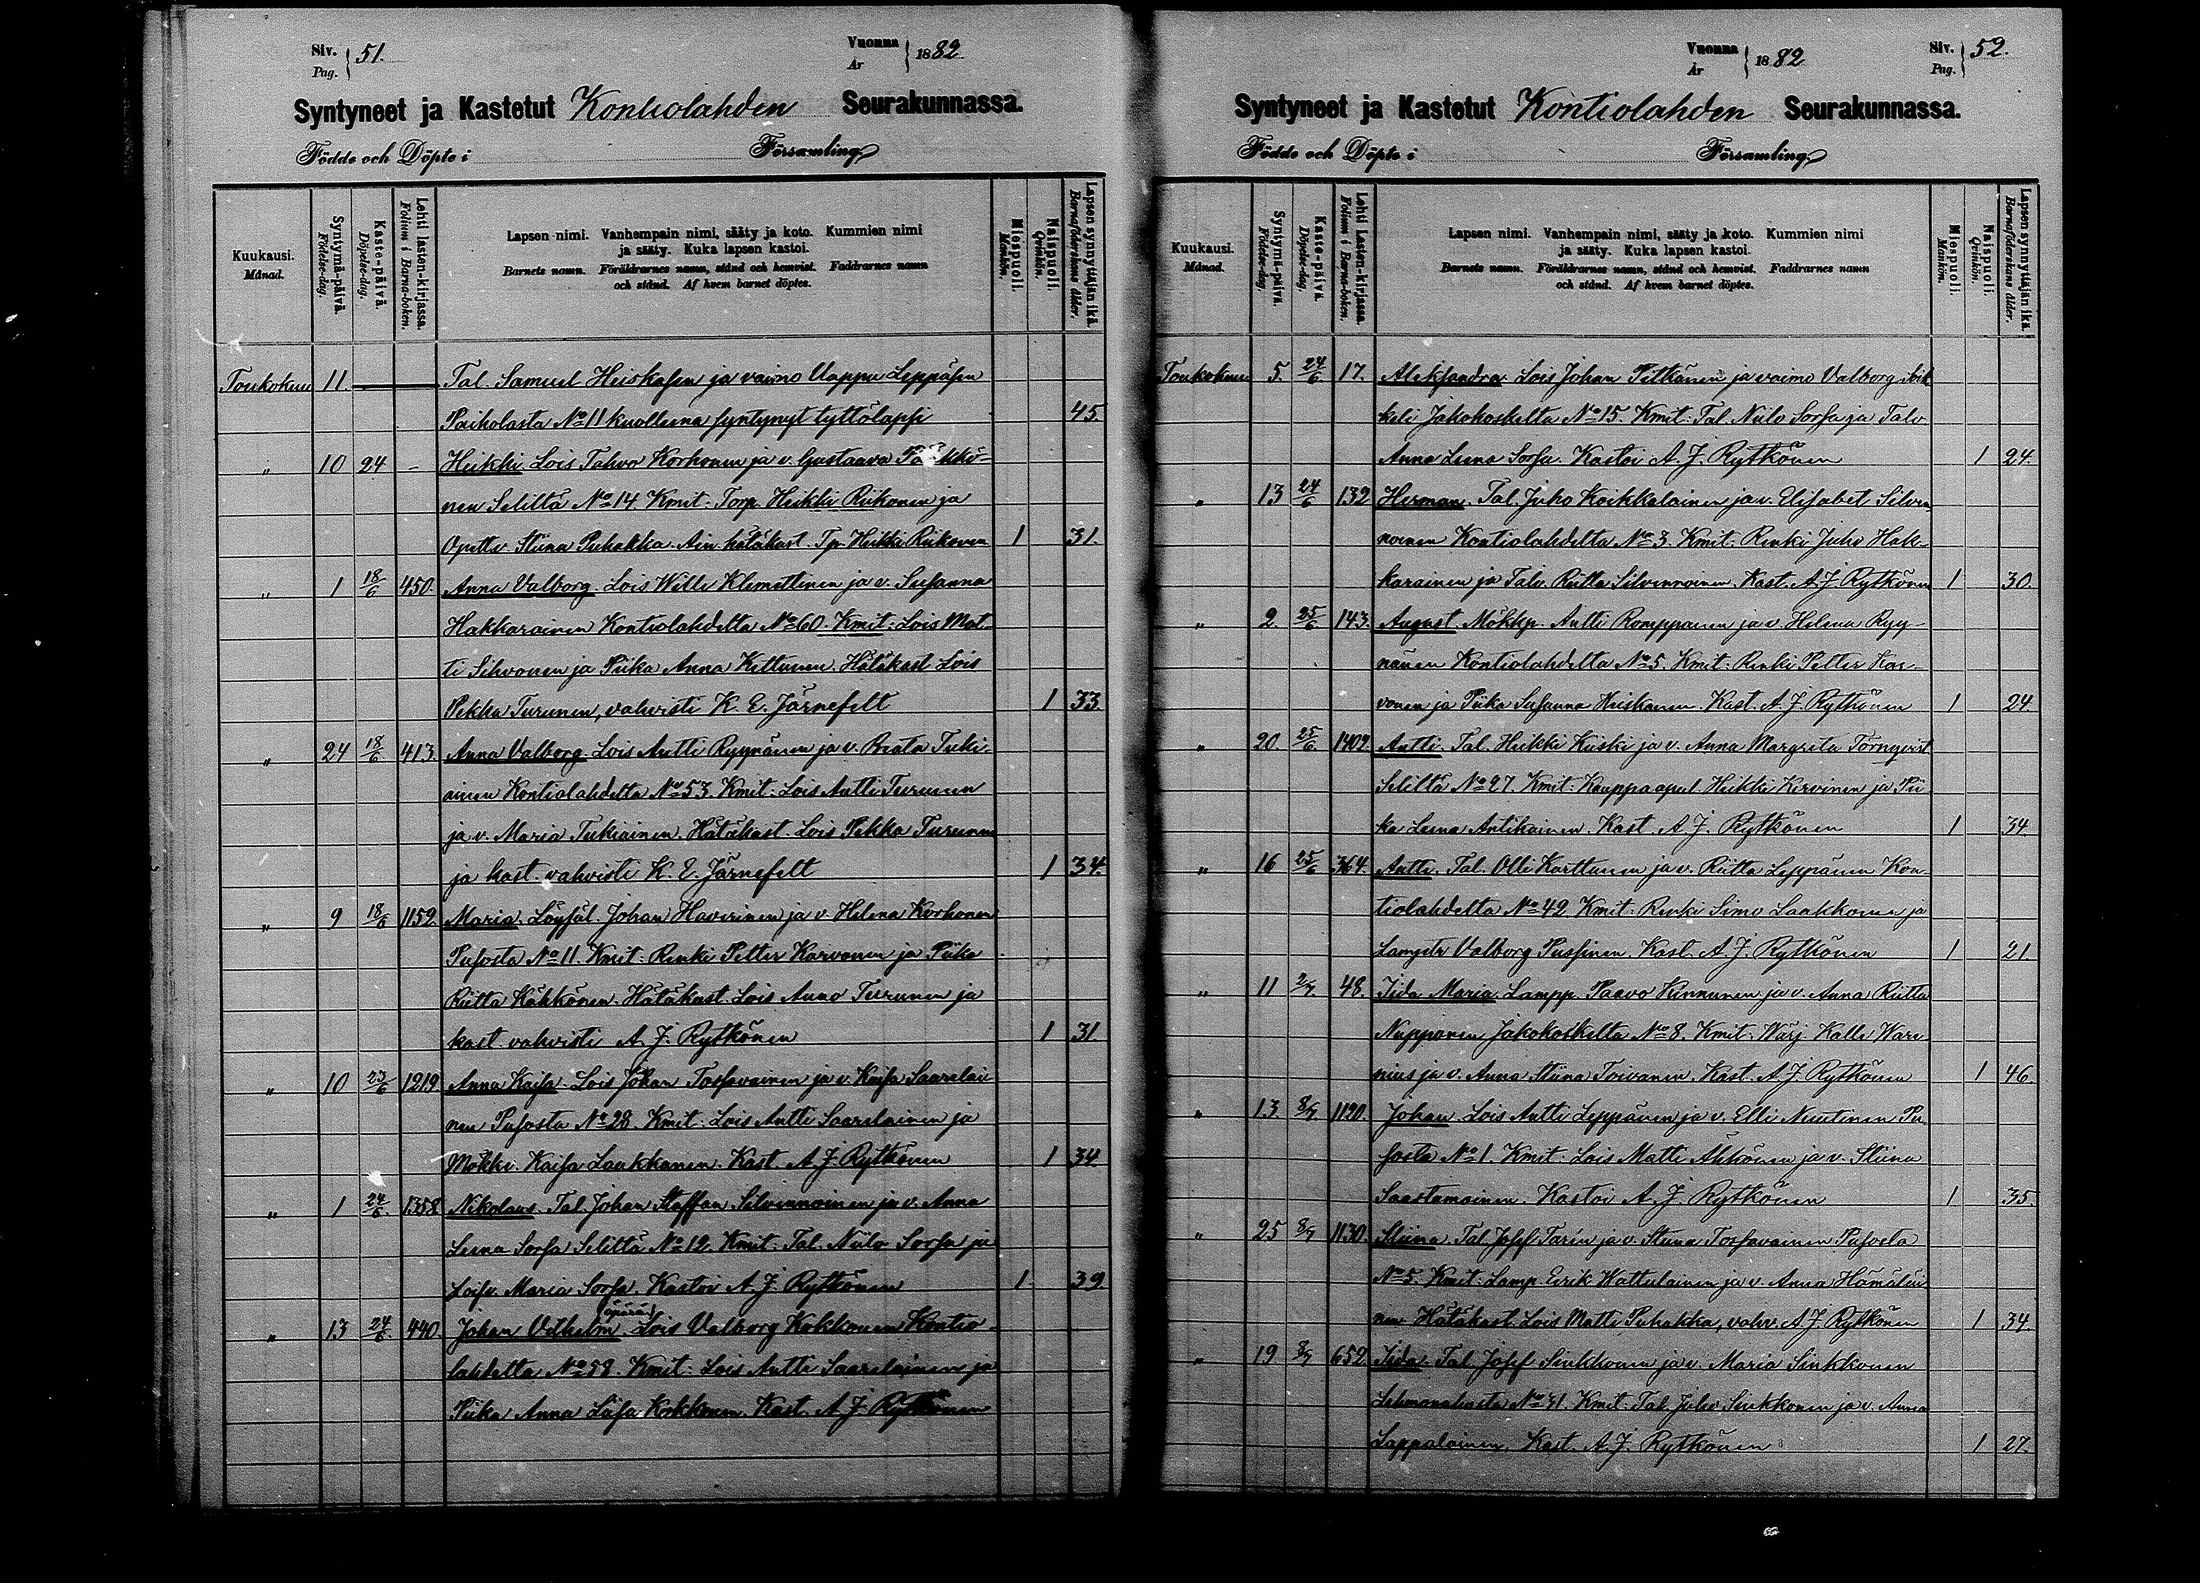 Siv. Pag. 51.
Vuonna År 1882
Syntyneet ja Kastetut Kontiolahden Seurakunnassa.
Födde och Döpte i Församling
Kuukausi. Månad.
Syntymä-päivä. Födelse-dag.
Kaste-päivä. Döpelse-dag.
Lehti lasten-kirjassa. Folium i Barna-boken.
Lapsen nimi. Vanhempain nimi, sääty ja koto. Kummien nimi
ja sääty. Kuka lapsen kastoi.
Barnets namn. Föräldrarnes namn, stånd och hemvist. Faddrarnes namn
och stånd. Af hvem barnet döptes.
Miespuoli. Mankön.
Naispuoli. Qvinkön.
Lapsen synnyttäjän ikä. Barnaföderskans ålder.
Toukokuu 11. Tal. Samuel Heiskasen ja vaimo Vappu Leppäsen
Paiholasta No 11 kuolleena syntynyt tyttölapsi 45.
" 10 24 - Heikki Lois Tahvo Korhonen ja v. Gustaava
nen Seliltä No 14. Kmit: Torp. Heikki Riikonen ja
Stiina Puhakka. hätäkast. Heikki Riikonen 1 31.
" 1 18/6 450. Anna Valborg. Lois Wille Klemettinen ja v. Susanna
Hakkarainen Kontiolahdelta No 60. Kmit: Lois Mat-
ti Sihvonen ja Piika Anna Kettunen. Hätäkast Lois
Pekka Turunen, vahvisti K. E. Järnefelt 1 33.
" 24 18/6 413. Anna Valborg. Lois Antti Ryynänen ja v. Beata Tuki-
ainen Kontiolahdelta No 53. Kmit: Lois Antti Turunen
ja v. Maria Tukiainen. Hätäkast. Lois Pekka Turunen
ja kast. vahvisti K. E. Järnefelt 1 34.
" 9 18/6 1152. Maria. Löysäl. Johan Haverinen ja v. Helena Korhonen
Pusosta No 11. Kmit: Renki Petter Karvonen ja Piika
Riitta Kähkönen. Hätäkast. Lois Anna Turunen ja
kast. vahvisti A. J. Rytkönen 1 31.
" 10 23/6 1219. Anna Kaisa. Lois Johan Tossavainen ja v. Kaisa Saarelai-
nen Pusosta No 28. Kmit: Lois Antti Saarelainen ja
Mökki. Kaisa Laakkanen. Kast. A. J. Rytkönen 1 34.
" 1 24/6. 1358. Nikolaus. Tal. Johan Staffan Silvennoinen ja v. Anna
Leena Sorsa Seliltä No 12. Kmit: Tal. Niilo Sorsa ja
Maria Sorsa. Kastoi A. J. Rytkönen 1 39.
" 13 24/6 440. Johan Vilhelm (äpärä) Lois Valborg Kokkonen Kontio-
lahdelta No 58. Kmit: Lois Antti Saarelainen ja
Piika Anna Liisa Kokkonen. Kast. A. J. Rytkönen
Vuonna År 1882
Siv. Pag. 52.
Syntyneet ja Kastetut Kontiolahden Seurakunnassa.
Födde och Döpte i Församling
Kuukausi. Månad.
Syntymä-päivä. Födelse-dag.
Kaste-päivä. Döpelse-dag.
Lehti Lasten-kirjassa. Folium i Barna-boken.
Lapsen nimi. Vanhempain nimi, sääty ja koto. Kummien nimi
ja sääty. Kuka lapsen kastoi.
Barnets namn. Föräldrarnes namn, stånd och hemvist. Faddrarnes namn
och stånd. Af hvem barnet döptes.
Miespuoli. Mankön.
Naispuoli. Qvinkön.
Lapsen synnyttäjän ikä. Barnaföderskans ålder.
Toukokuu 5. 24/6 17. Aleksandra Lois Johan Pitkänen ja vaimo Valborg
Jakokoskelta No 15. Kmit: Tal. Niilo Sorsa ja Talv.
Anna Leena Sorsa. Kastoi A. J. Rytkönen 1 24.
" 13 24/6 132. Herman. Tal. Juho Koikkalainen ja v. Elisabet Silven-
noinen Kontiolahdelta No 3. Kmit: Renki Juho Hak-
karainen ja Talv. Riitta Silvennoinen. Kast. A. J. Rytkönen 1 30.
" 2. 25/6 143. August. Mökkp. Antti Romppanen ja v. Helena Ryy-
nänen Kontiolahdelta No 5. Kmit: Renki Petter Kar-
vonen ja Piika Susanna Heiskanen. Kast. A. J. Rytkönen 1 24
" 20. 25/6. 1409. Antti. Tal. Heikki Kiiski ja v. Anna Margreta Törnqvist
Seliltä No 27. Kmit: Kauppaapul. Heikki Hirvinen ja Pii-
ka Leena Antikainen. Kast. A. J. Rytkönen 1 34.
" 16 25/6 364. Antti. Tal. Olli Karttunen ja v. Riitta Leppänen Kon-
tiolahdelta No 42. Kmit: Renki Simo Laakkonen ja
Valborg Pussinen. Kast. A. J. Rytkönen 1 21
" 11 2/7. 48. Iida Maria. Lampp. Paavo Kinnunen ja v. Anna Riitta
Nupponen Jakokoskelta No 8. Kmit: Wärj. Kalle Ware-
nius ja v. Anna Stiina Toivanen. Kast. A. J. Rytkönen 1 46.
" 13 8/7 1120. Johan. Lois Antti Leppänen ja v. Elli Nuutinen Pu-
sosta No 1. Kmit: Lois Matti Ähkönen ja v. Stiina
Saastamoinen. Kastoi A. J. Rytkönen 1 35.
" 25 8/7 1130. Stiina. Tal. Josef Tarin ja v. Stiina Tossavainen Pusosta
No 5. Kmit: Lamp. Eerik Hattulainen ja v. Anna Hämäläi-
nen. Hätäkast. Lois Matti Puhakka, vahv. A. J. Rytkönen 1 34.
" 19 8/7 652. Iida. Tal. Josef Sinkkonen ja v. Maria Sinkkonen
No 41. Kmit: Tal. Juho Sinkkonen ja v. Anna
Lappalainen. Kast. A. J. Rytkönen 1 27.